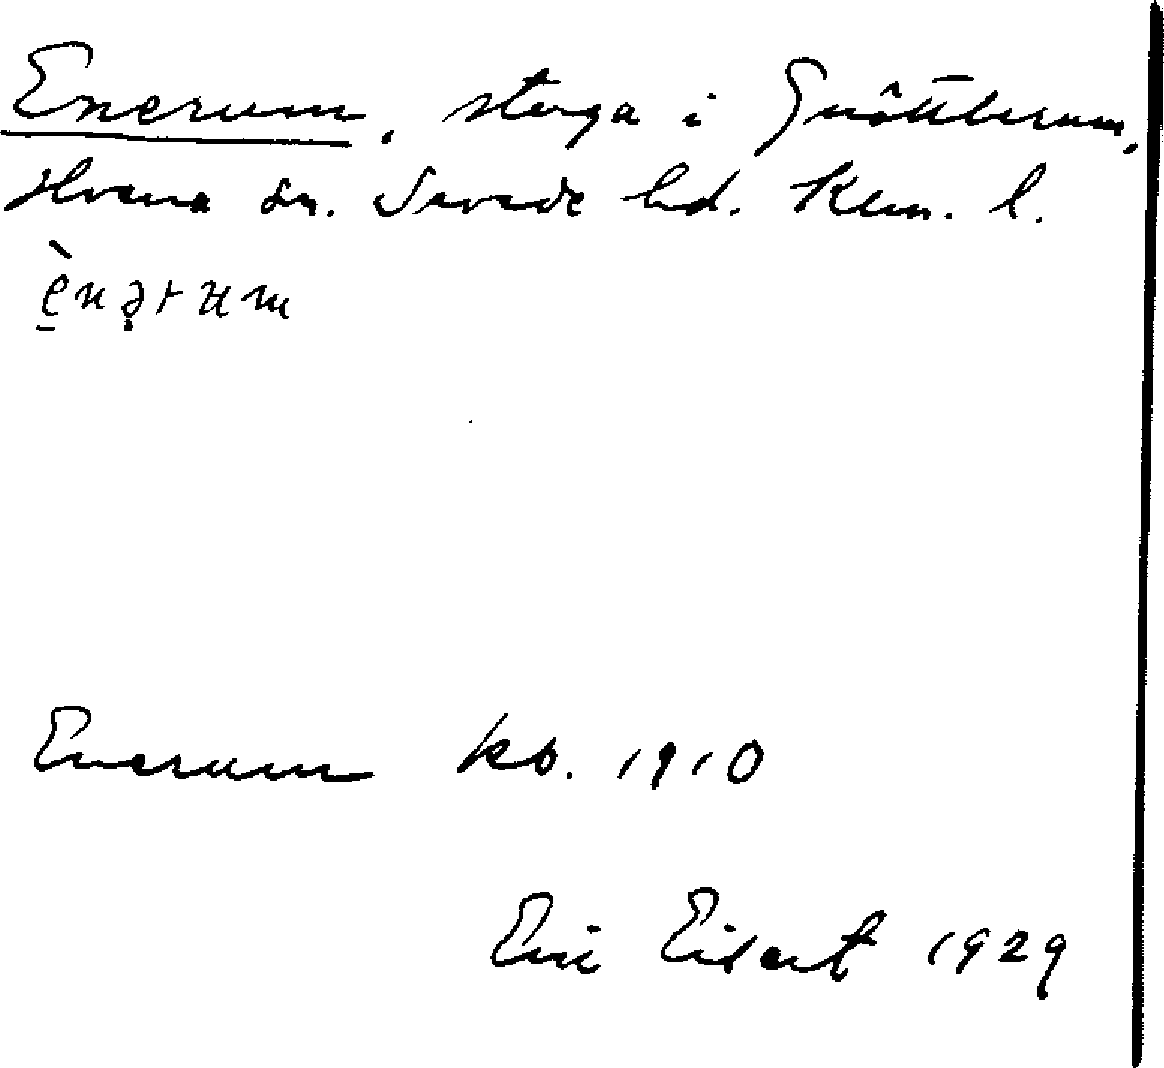 Enerum, stuga i Gnöttlerum,
Hvena sn. Sevede hd. Klm. l.
è̠nə̣rum
Enerum kb. 1910
Eric 1929